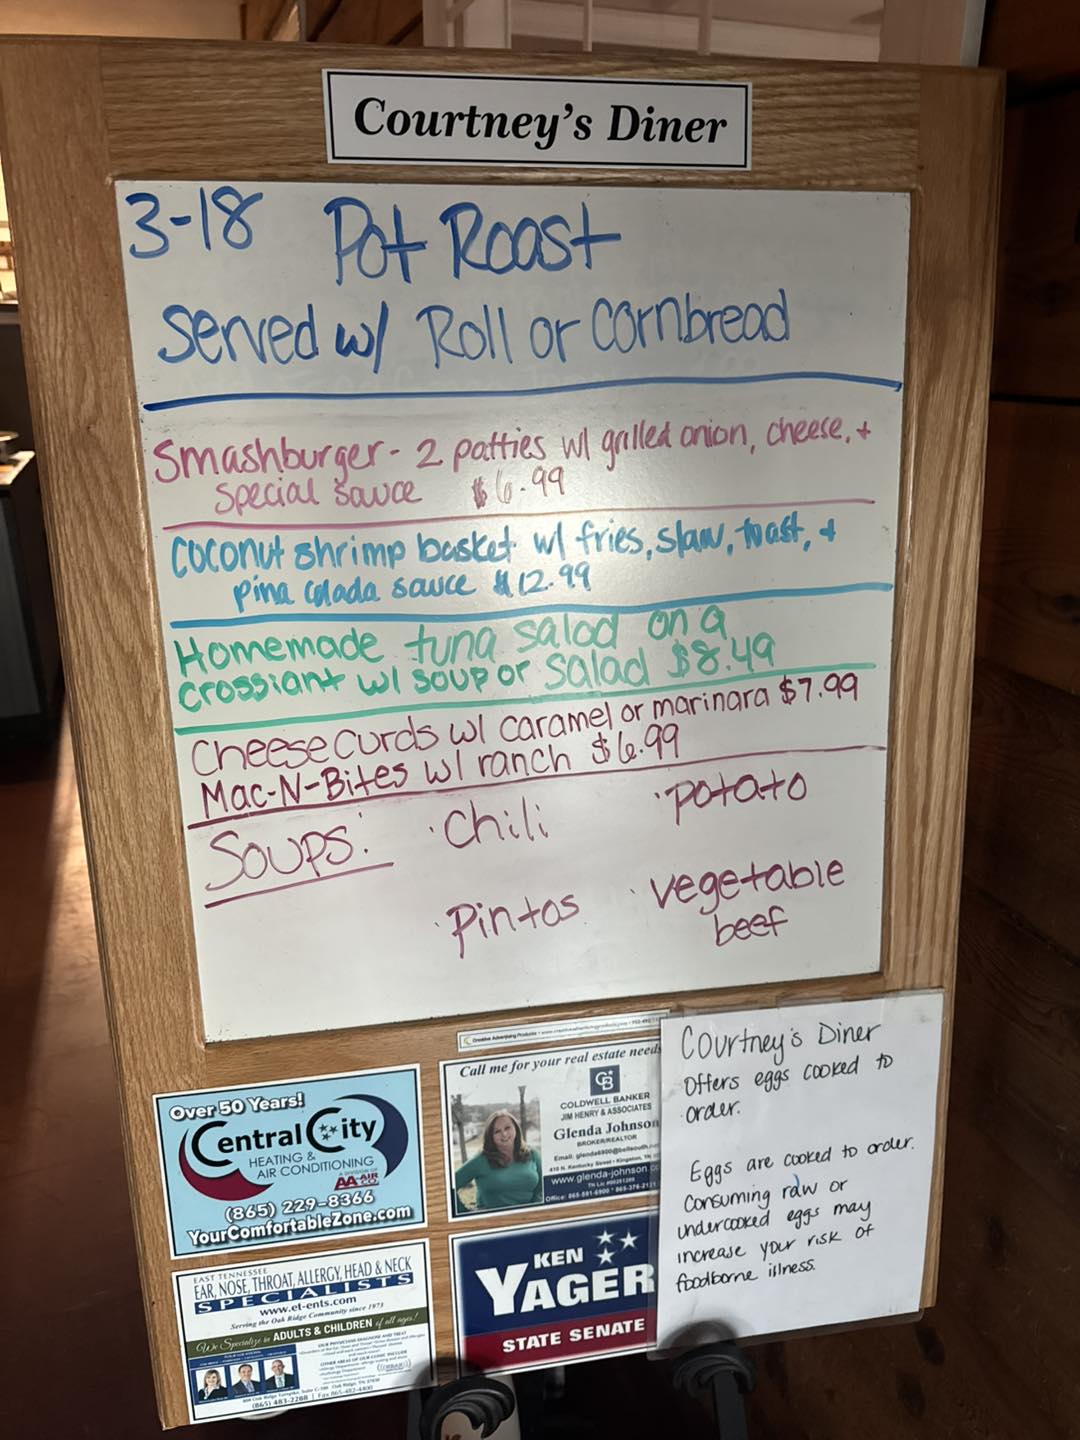 Courtney's Diner
3-18 Pot Roast
Served w/ Roll or Cornbread
Smashburger - 2 patties w/ grilled onion, cheese, +
special sauce $6.99
Coconut shrimp basket w/ fries, slaw, toast, +
pina colada sauce $12.99
Homemade tuna salad on a
crossiant w/ soup or salad $8.49
Cheese curds w/ caramel or marinara $7.99
Mac-N-Bites w/ ranch $6.99
Soups: · Chili · potato
· Pintos · vegetable
beef
Over 50 Years!
Central City
HEATING &
AIR CONDITIONING
A DIVISION OF
(865) 229-8366
YourComfortableZone.com
Creative Advertising Products
Call me for your real estate needs
CB
COLDWELL BANKER
JIM HENRY & ASSOCIATES
Glenda Johnson
BROKER/REALTOR
www.glenda-johnson.c
EAST TENNESSEE
EAR, NOSE, THROAT, ALLERGY, HEAD & NECK
SPECIALISTS
www.et-ents.com
Serving the Oak Ridge Community since 1973
We Specialize in ADULTS & CHILDREN of all ages!
(865) 483-2288 | Fax 865-482-4400
KEN
YAGER
STATE SENATE
Courtney's Diner
Offers eggs cooked to
order.
Eggs are cooked to order.
Consuming raw or
undercooked eggs may
increase your risk of
foodborne illness.